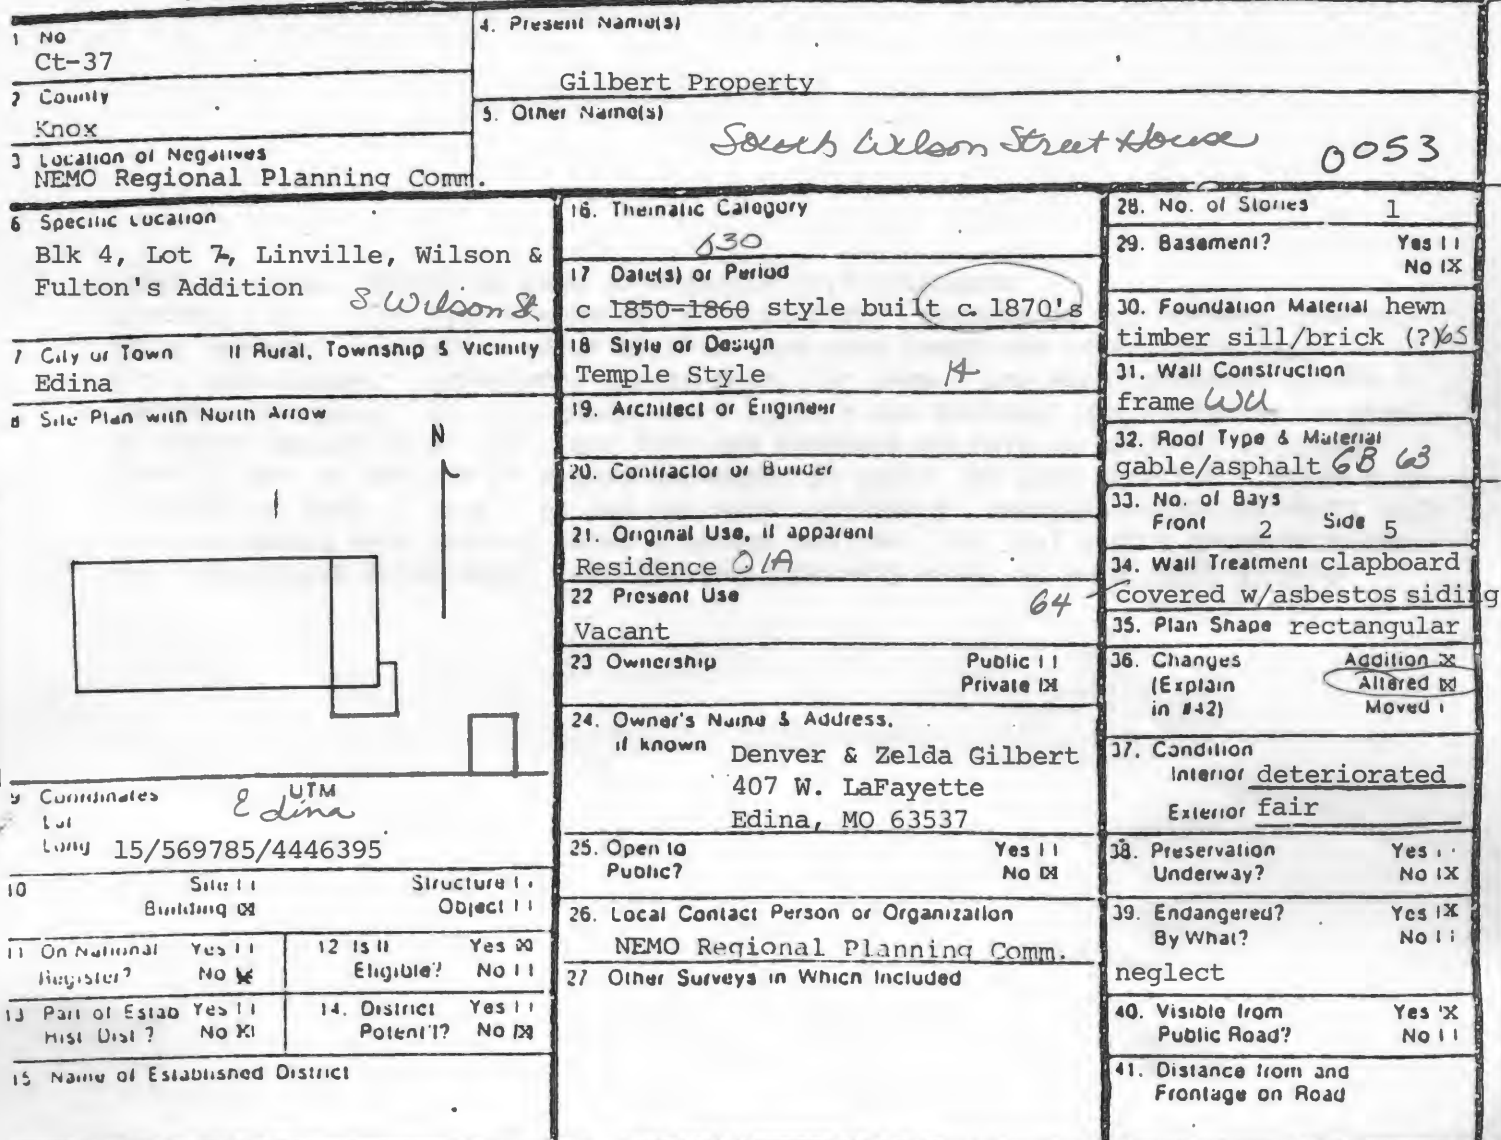 1 No
Ct-37
2 County
Knox
3 Location of Negatives
NEMO Regional Planning Comm.
4. Present Name(s)
Gilbert Property
5. Other Name(s)
South Wilson Street House 0053
6 Specific Location
Blk 4, Lot 7, Linville, Wilson &
Fulton's Addition S. Wilson St
7 City or Town If Rural, Township & Vicinity
Edina
8 Site Plan with North Arrow
N
9 Coordinates UTM
Lat Edina
Long 15/569785/4446395
10 Site [ ] Structure [ ]
Building [X] Object [ ]
11 On National Yes [ ]
Register? No [X]
12 Is It Yes [X]
Eligible? No [ ]
13 Part of Estab Yes [ ]
Hist Dist? No [X]
14. District Yes [ ]
Potent'l? No [X]
15 Name of Established District
16. Thematic Category
630
17 Date(s) or Period
c 1850-1860 style built c. 1870's
18 Style or Design
Temple Style 14
19. Architect or Engineer
20. Contractor or Builder
21. Original Use, if apparent
Residence 01A
22 Present Use
Vacant
23 Ownership Public [ ]
Private [X]
24. Owner's Name & Address,
if known Denver & Zelda Gilbert
407 W. LaFayette
Edina, MO 63537
25. Open to Yes [ ]
Public? No [X]
26. Local Contact Person or Organization
NEMO Regional Planning Comm.
27 Other Surveys in Which Included
28. No. of Stories 1
29. Basement? Yes [ ]
No [X]
30. Foundation Material hewn
timber sill/brick (?) 65
31. Wall Construction
frame WU
32. Roof Type & Material
gable/asphalt GB 63
33. No. of Bays
Front 2 Side 5
34. Wall Treatment clapboard
64 covered w/asbestos siding
35. Plan Shape rectangular
36. Changes Addition [X]
(Explain Altered [X]
in #42) Moved [ ]
37. Condition
Interior deteriorated
Exterior fair
38. Preservation Yes [ ]
Underway? No [X]
39. Endangered? Yes [X]
By What? No [ ]
neglect
40. Visible from Yes [X]
Public Road? No [ ]
41. Distance from and
Frontage on Road